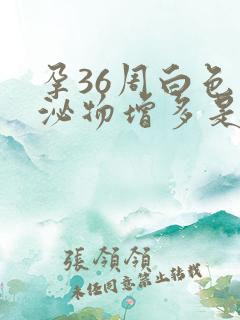 孕36周白色
泌物增多是
張領領
未经同意禁止转载